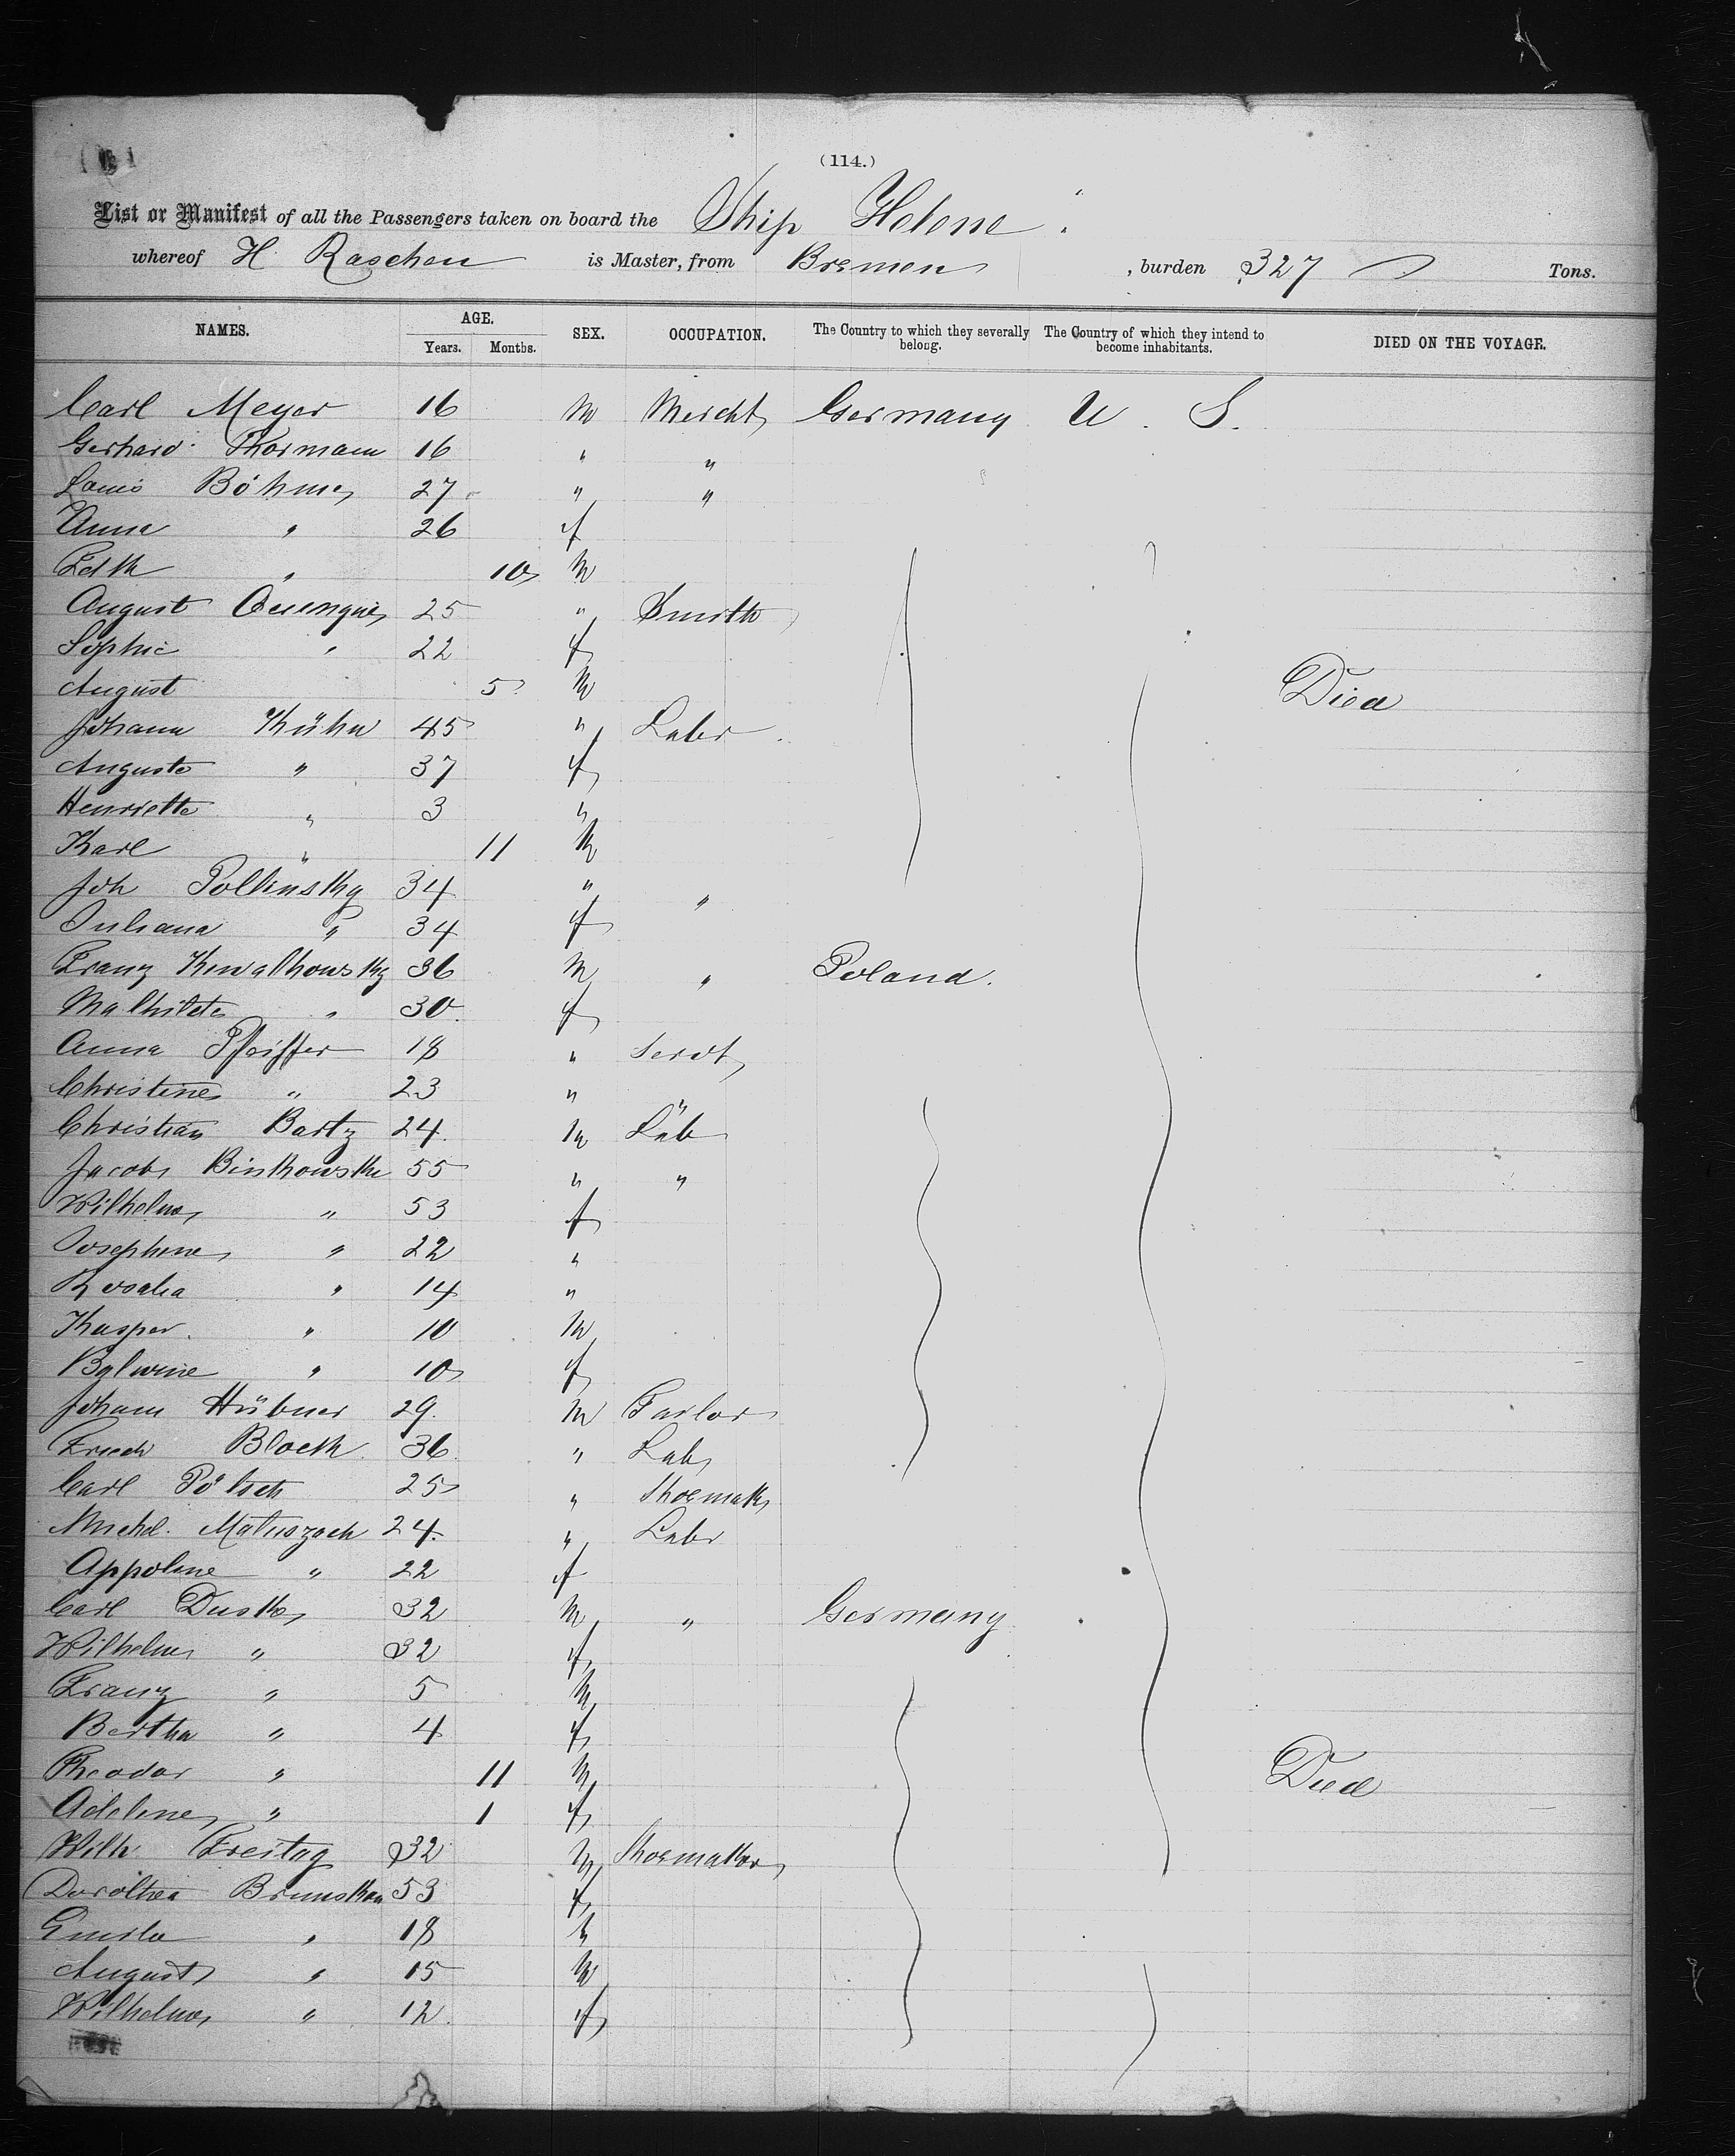 (114.)
List or Manifest of all the Passengers taken on board the Ship Helene
whereof H. Raschen is Master, from Bremen, burden 327 Tons.
NAMES. AGE. Years. Months. SEX. OCCUPATION. The Country to which they severally belong. The Country of which they intend to become inhabitants. DIED ON THE VOYAGE.
Carl Meyer 16 M Mercht Germany U. S.
Gerhard Thormann 16 " "
Louis Böhme 27 " "
Anna " 26 f
Edth " 10 M
August 25 " Smith
Sophie " 22 f
August 5 M Died
Johann Kühn 45 " Labr
Auguste " 37 f
Henriette " 3 "
Karl " 11 M
Joh Pollinsky 34 " "
Juliana " 34 f
Franz Kewalkowsky 36 M " Poland.
Mathilde " 30 f
Anna Pfeiffer 18 " Servt
Christine " 23 " "
Christian Bartz 24 M Lab
Jacob Binkowske 55 " "
Wilhelm " 53 f
Josephine " 22 "
Rosalia " 14 "
Kasper " 10 M
Balwine " 10 f
Johann Hübner 29 M Tailor
Friedr Block 36 " Lab
Carl Pölsch 25 " Shoemak
Michel. Matuszack 24 " Labr
Appoline " 22 f
Carl Duske 32 M " Germany
Wilhelm " 32 f
Franz " 5 M
Bertha " 4 f
Theodor " 11 M Died
Adeline " 1 f
Wilh Freitag 32 M Shoemaker
Dorothea 53 f
Emila " 18
August " 15 M
Wilhelm " 12 f